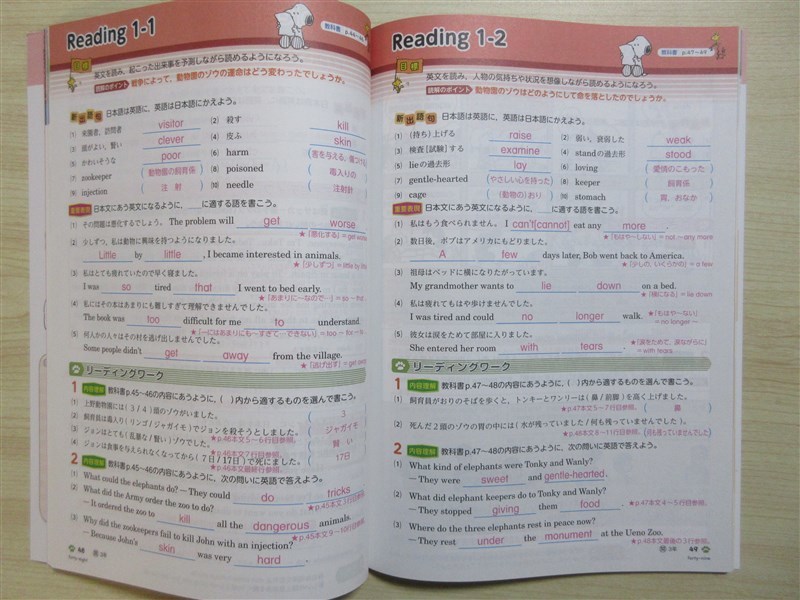 Reading 1-1
教科書 p.44~46
目標
英文を読み、起こった出来事を予測しながら読めるようになろう。
読解のポイント 戦争によって、動物園のゾウの運命はどう変わったでしょうか。
新出語句 日本語は英語に、英語は日本語にかえよう。
(1) 来園者、訪問者 visitor (2) 殺す kill
(3) 頭がよい、賢い clever (4) 皮ふ skin
(5) かわいそうな poor (6) harm (害を与える、傷つける)
(7) zookeeper (動物園の飼育係) (8) poisoned (毒入りの)
(9) injection (注射) (10) needle (注射針)
重要表現 日本文にあう英文になるように、に適する語を書こう。
(1) その問題は悪化するでしょう。 The problem will get worse
★「悪化する」= get worse
(2) 少しずつ、私は動物に興味を持つようになりました。
Little by little, I became interested in animals.
★「少しずつ」= little by little
(3) 私はとても疲れていたので早く寝ました。
I was so tired that I went to bed early.
★「あまりに…なので~」= so ~ that …
(4) 私にはその本はあまりにも難しすぎて理解できませんでした。
The book was too difficult for me to understand.
★「―にはあまりにも~すぎて…できない」= too ~ for ― to …
(5) 何人かの人々はその村を逃げ出しませんでした。
Some people didn't get away from the village.
★「逃げ出す」= get away
リーディングワーク
1 内容理解 教科書p.45~46の内容にあうように、( )内から適するものを選んで書こう。
(1) 上野動物園には(3/4)頭のゾウがいました。 (3)
(2) 飼育員は毒入り(リンゴ/ジャガイモ)でジョンを殺そうとしました。 (ジャガイモ)
★p.46本文5~6行目参照。
(3) ジョンはとても(乱暴な/賢い)ゾウでした。 (賢い)
★p.46本文7行目参照。
(4) ジョンは食事を与えられなくなってから(7日/17日)で死にました。 (17日)
★p.46本文最終行参照。
2 内容理解 教科書p.45~46の内容にあうように、次の問いに英語で答えよう。
(1) What could the elephants do? — They could do tricks
(2) What did the Army order the zoo to do?
— It ordered the zoo to kill all the dangerous animals.
(3) Why did the zookeepers fail to kill John with an injection?
— Because John's skin was very hard.
48 3年
forty-eight
Reading 1-2
教科書 p.47~49
目標
英文を読み、人物の気持ちや状況を想像しながら読めるようになろう。
読解のポイント 動物園のゾウはどのようにして命を落としたのでしょうか。
新出語句 日本語は英語に、英語は日本語にかえよう。
(1) (持ち)上げる raise (2) 弱い、衰弱した weak
(3) 検査[試験]する examine (4) standの過去形 stood
(5) lieの過去形 lay (6) loving (愛情のこもった)
(7) gentle-hearted (やさしい心を持った) (8) keeper (飼育係)
(9) cage (動物の)おり (10) stomach (胃、おなか)
重要表現 日本文にあう英文になるように、に適する語を書こう。
(1) 私はもう食べられません。 I can't[cannot] eat any more.
★「もはや~しない」= not ~ any more
(2) 数日後、ボブはアメリカにもどりました。
A few days later, Bob went back to America.
★「少しの、いくらかの」= a few
(3) 祖母はベッドに横になりたがっています。
My grandmother wants to lie down on a bed.
★「横になる」= lie down
(4) 私は疲れてもはや歩けませんでした。
I was tired and could no longer walk.
★「もはや~ない」= no longer ~
(5) 彼女は涙をためて部屋に入りました。
She entered her room with tears.
★「涙をためて、涙ながらに」= with tears
リーディングワーク
1 内容理解 教科書p.47~48の内容にあうように、( )内から適するものを選んで書こう。
(1) 飼育員がおりのそばを歩くと、トンキーとワンリーは(鼻/前脚)を高く上げました。
★p.47本文5~7行目参照。 (鼻)
(2) 死んだ2頭のゾウの胃の中には(水が残っていました/何も残っていませんでした)。
(何も残っていませんでした)
2 内容理解 教科書p.47~48の内容にあうように、次の問いに英語で答えよう。
(1) What kind of elephants were Tonky and Wanly?
— They were sweet and gentle-hearted.
(2) What did elephant keepers do to Tonky and Wanly?
— They stopped giving them food.
★p.47本文4~5行目参照。
(3) Where do the three elephants rest in peace now?
— They rest under the monument at the Ueno Zoo.
★p.48本文最後の3行参照。
3年 49
forty-nine